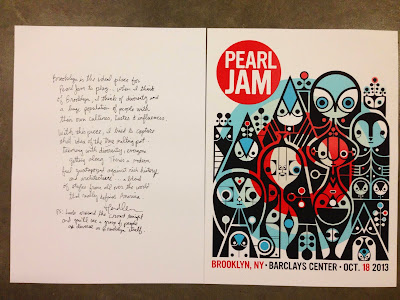 Brooklyn is the ideal place for
Pearl Jam to play. When I think
of Brooklyn, I think of diversity and
a huge population of people with
their own cultures, tastes & influences
With this piece, I tried to capture
that idea of the true melting pot -
teeming with diversity, everyone
getting along. There's a modern
feel juxtaposed against rich history
and architecture - a blend
of styles from all over the world
that really defines America.
PS: Look around the crowd tonight
and you'll see a group of people
as diverse as Brooklyn itself.
PEARL
JAM
BROOKLYN, NY • BARCLAYS CENTER • OCT. 18 2013